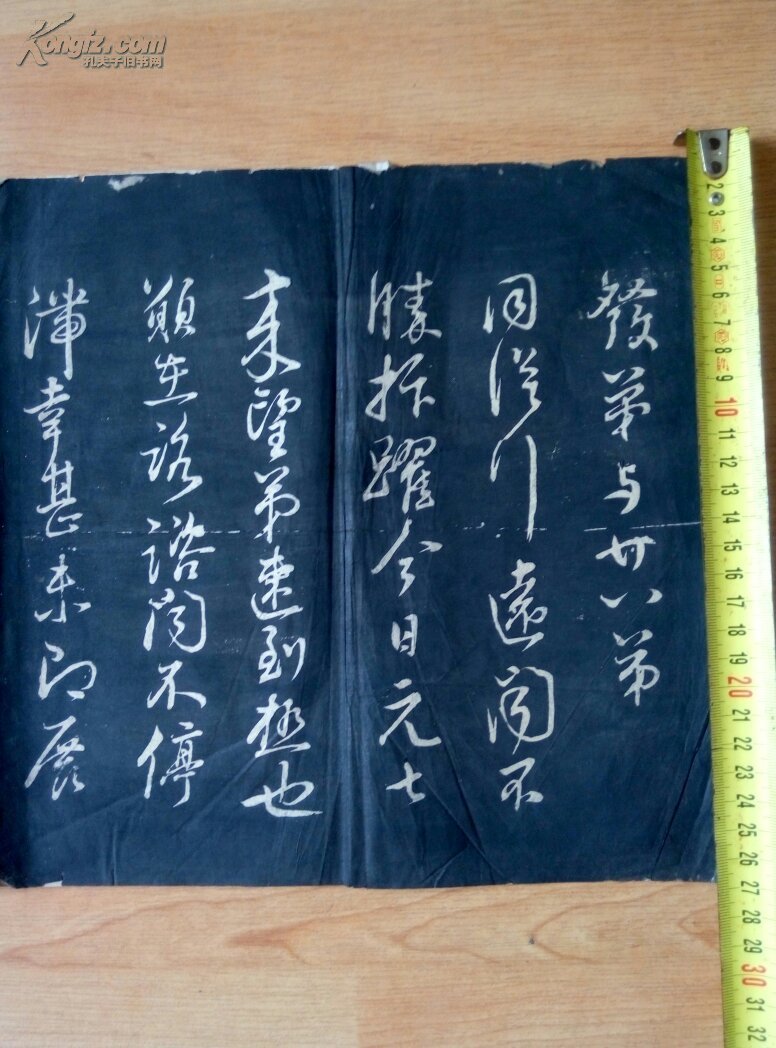 Kongfz.com
孔夫子旧书网
發弟与廿八弟
同從行遠聞不
勝抃躍今日元七
来望弟速到極也
願在路不停
滯幸甚未即展
2 3 4 5 6 7 8 9 10 11 12 13 14 15 16 17 18 19 20 21 22 23 24 25 26 27 28 29 30 31 32